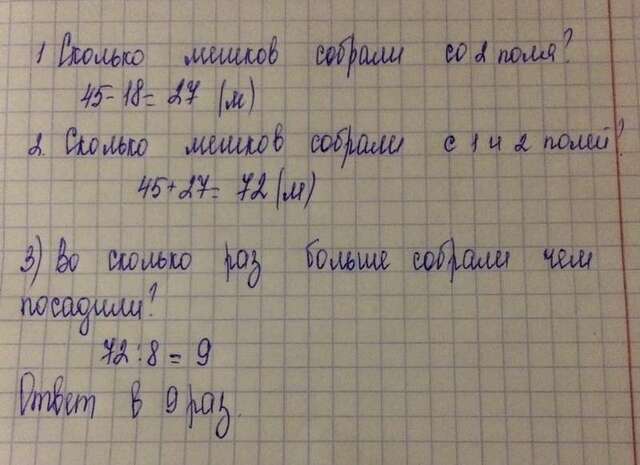 1 Сколько мешков собрали со 2 поля?
45-18= 27 (м)
2. Сколько мешков собрали с 1 и 2 полей?
45+27= 72 (м)
3) Во сколько раз больше собрали чем
посадили?
72:8 = 9
Ответ в 9 раз.